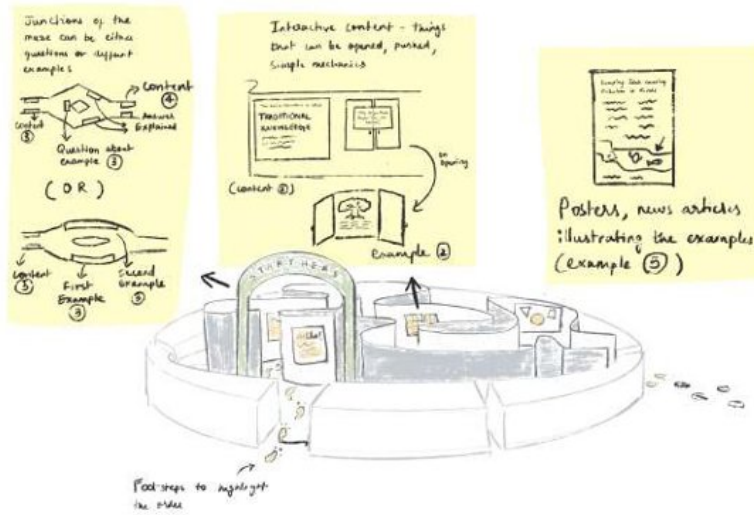 Junctions of the
maze can be either
questions or different
examples
Content
④
Content
③
Answer
Explained
Question about
example ③
(OR)
Content
③
First
Example
③
Second
Example
③
Interactive content - things
that can be opened, pushed,
simple mechanics
TRADITIONAL
KNOWLEDGE
(content ②)
on
opening
Example ②
Posters, news articles
illustrating the examples
(example ⑤)
START HERE
Foot-steps to highlight
the order